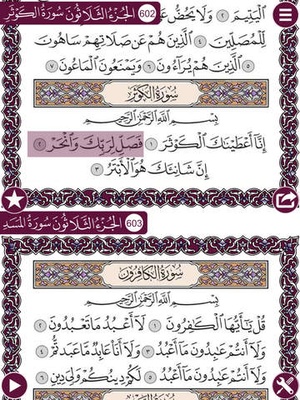 602 الجزء الثلاثون سورة الكوثر
اليتيم ٢ ولا يحض
للمصلين ٤ الذين هم عن صلاتهم ساهون
٥ الذين هم يراءون ٦ ويمنعون الماعون ٧
سورة الكوثر
بسم الله الرحمن الرحيم
إنا أعطينك الكوثر ١ فصل لربك وانحر ٢
إن شانئك هو الأبتر ٣
603 الجزء الثلاثون سورة المسد
سورة الكافرون
بسم الله الرحمن الرحيم
قل يأيها الكفرون ١ لا أعبد ما تعبدون ٢
ولا أنتم عبدون ما أعبد ٣ ولا أنا عابد ما عبدتم ٤
ولا أنتم عبدون ما أعبد ٥ لكم دينكم ولي دين ٦